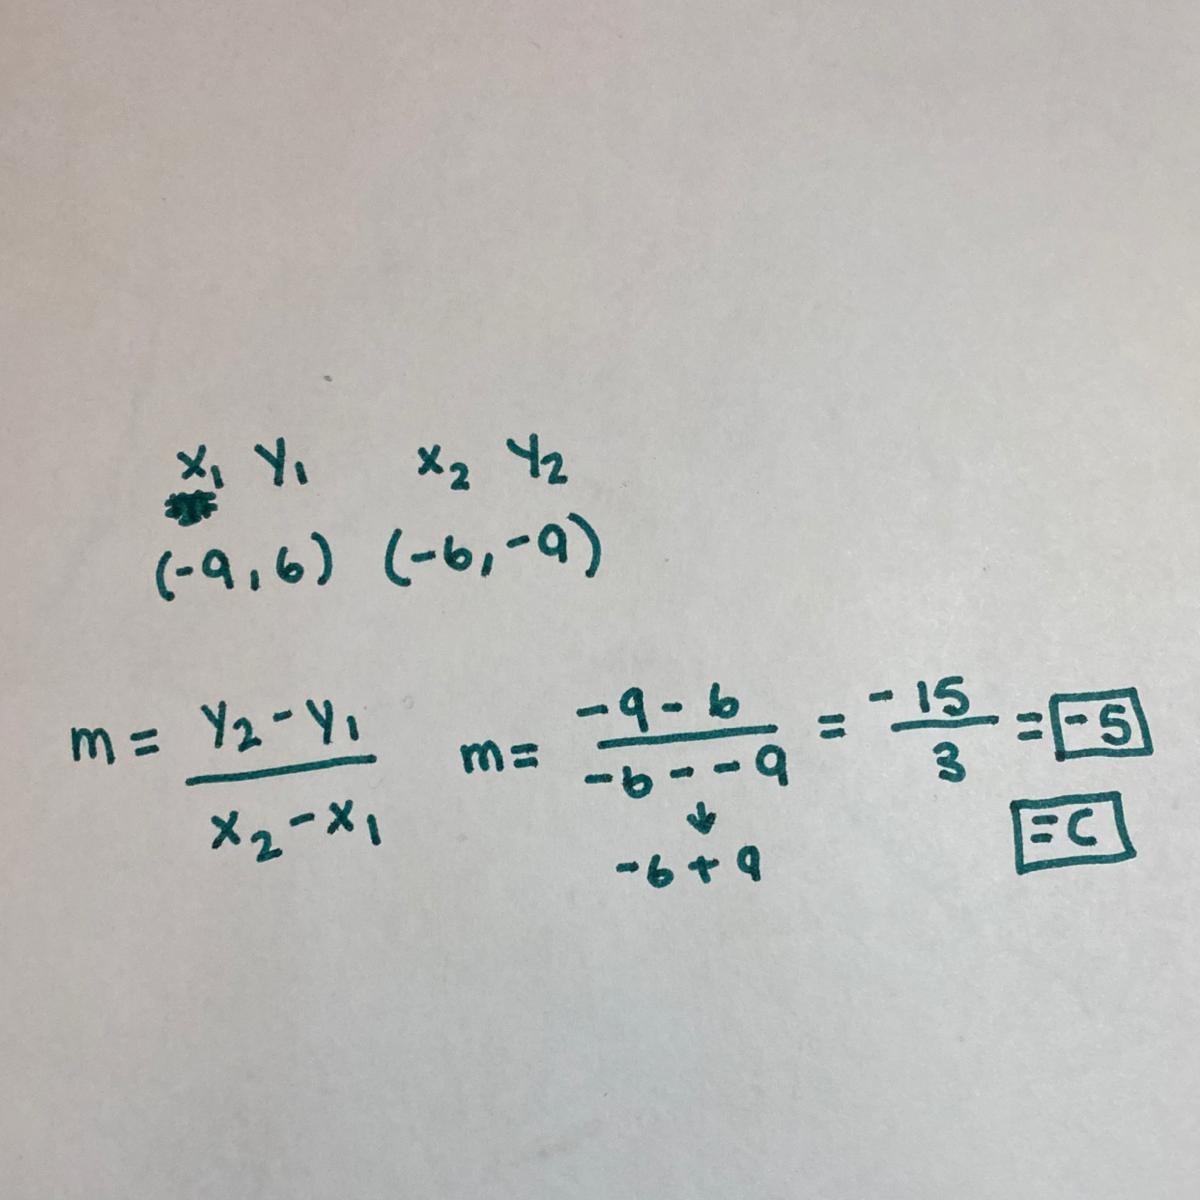 x₁ y₁ x₂ y₂
(-9, 6) (-6, -9)
m = y₂ - y₁ / x₂ - x₁ m = -9 - 6 / -6 - -9 = -15 / 3 = -5
↓
-6 + 9
= C